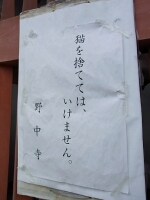 猫を捨てては、
いけません。
野中寺